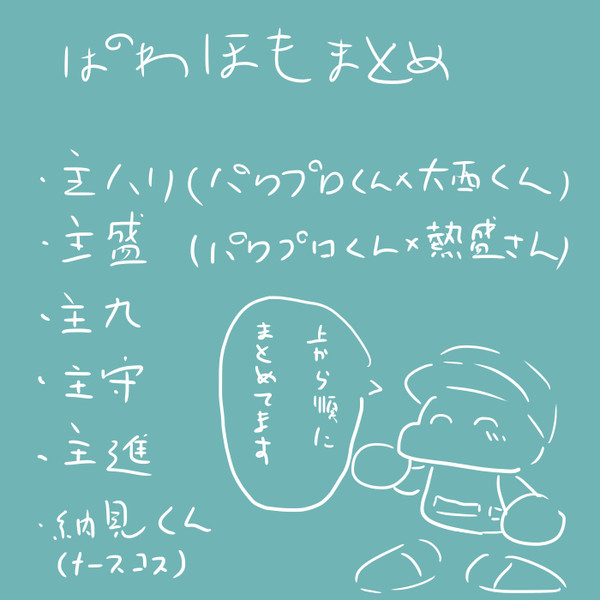 ぱわほもまとめ
・主ハリ(パワプロくん×大西くん)
・主盛 (パワプロくん×熱盛さん)
・主九
・主守
・主進
・納見くん
(ナースコス)
上から順に
まとめてます